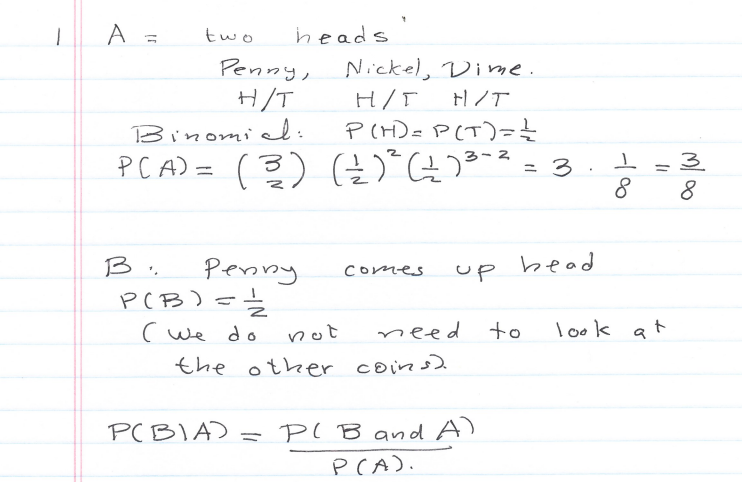 1 A = two heads
Penny, Nickel, Dime.
H/T H/T H/T
Binomial: P(H) = P(T) = 1/2
P(A) = (3 2) (1/2)² (1/2)³⁻² = 3 · 1/8 = 3/8
B: Penny comes up head
P(B) = 1/2
(we do not need to look at
the other coins).
P(B|A) = P(B and A)
P(A).